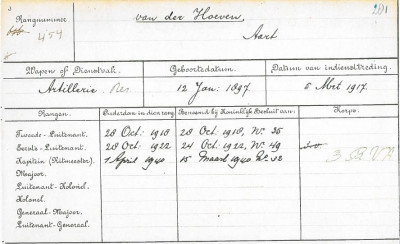 Rangnummer
van der Hoeven,
281
454
Aart
Wapen of Dienstvak. Geboortedatum. Datum van indiensttreding.
Artillerie. Res. 12 Jan: 1897. 5 Mrt 1917.
Rangen. Ouderdom in dien rang. Benoemd bij Koninklijk Besluit van: Korps.
Tweede-Luitenant. 28 Oct: 1918 28 Oct: 1918, No. 35
Eerste-Luitenant. 28 Oct: 1922 24 Oct: 1922, No. 49
Kapitein (Ritmeester). 1 April 1940 15 Maart 1940 No.
Majoor.
Luitenant-Kolonel.
Kolonel.
Generaal-Majoor.
Luitenant-Generaal.